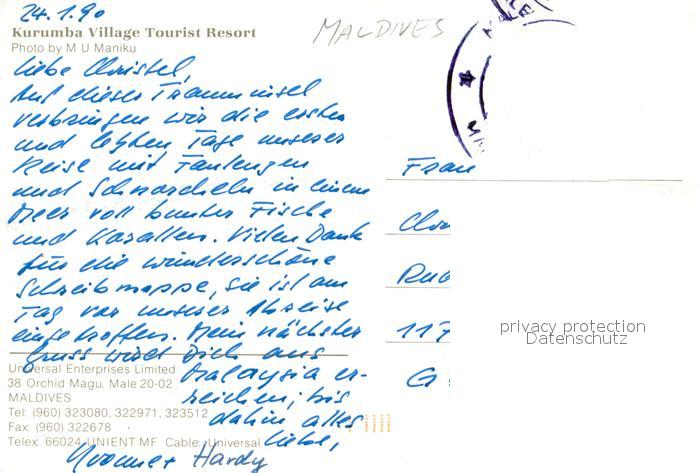 24.1.90
Kurumba Village Tourist Resort
Photo by M U Maniku
MALDIVES
MALE
Liebe Christel,
Auf dieser Trauminsel
verbringen wir die ersten
und letzten Tage unserer
Reise mit Faulenzen
und Schnorcheln in einem
Meer voll bunter Fische
und Korallen. Vielen Dank
für die wunderschöne
Schreibmappe, sie ist am
Tag vor unserer Abreise
eingetroffen. Mein nächster
Gruss wird Dich aus
Malaysia er-
reichen; bis
dahin alles
Liebe,
Yvonne + Hardy
Universal Enterprises Limited
38 Orchid Magu, Male 20-02
MALDIVES
Tel: (960) 323080, 322971, 323512
Fax: (960) 322678
Telex 66024 UNIENT MF Cable: Universal
Frau
117
G
privacy protection
Datenschutz